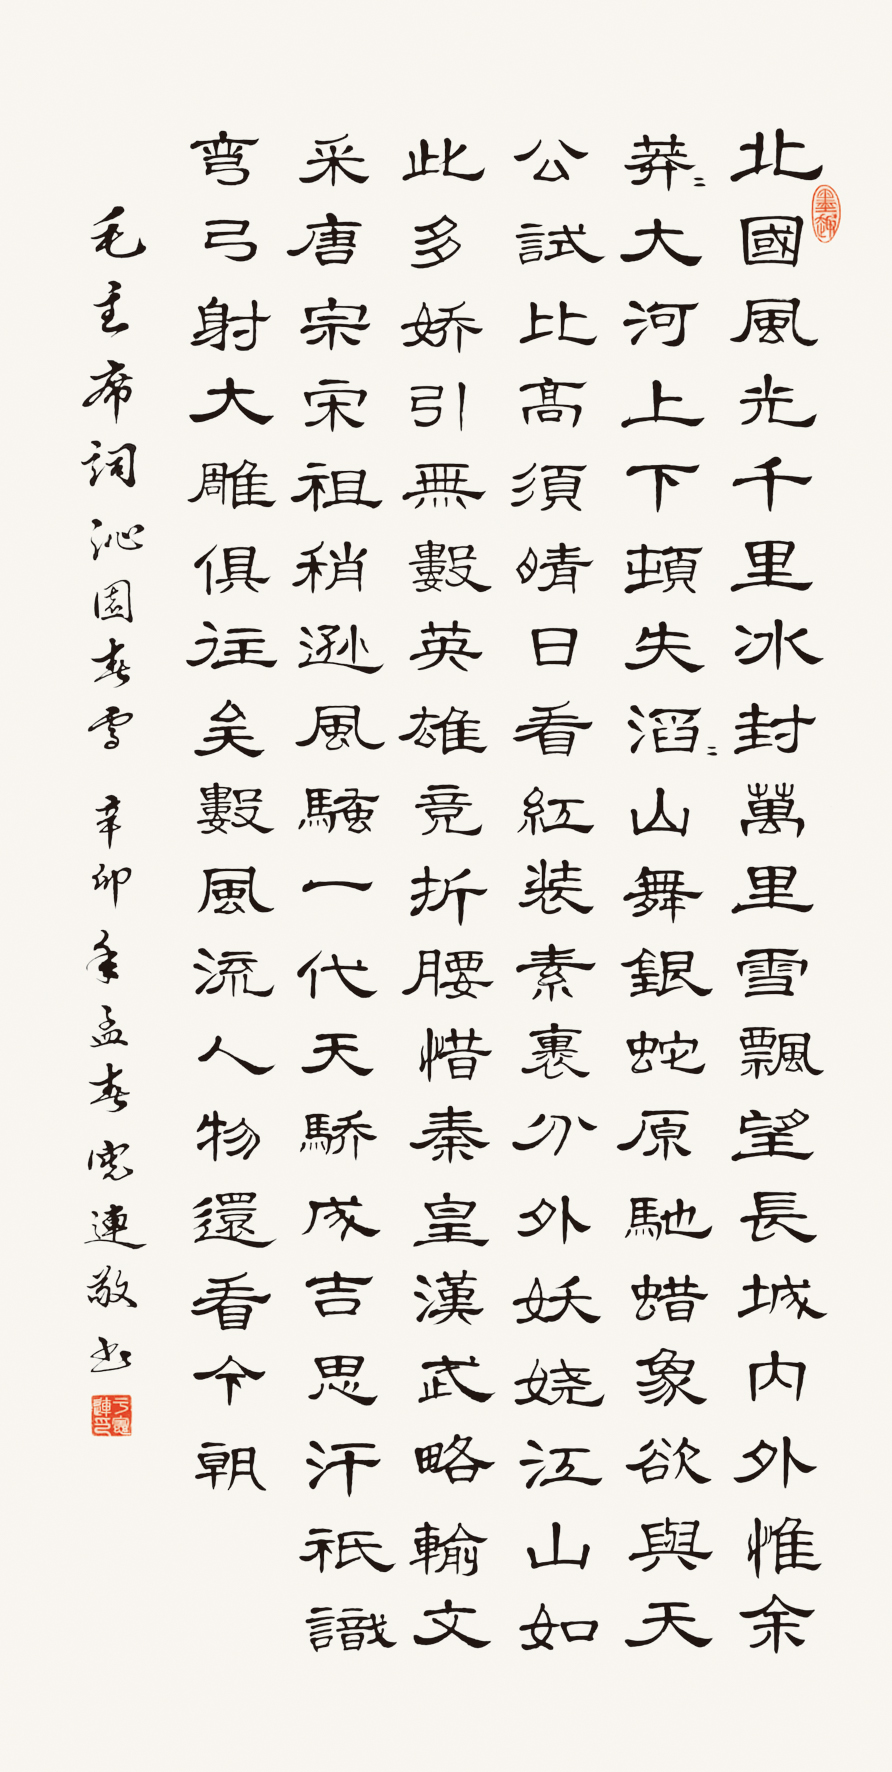 墨趣
北國風光千里冰封萬里雪飄望長城内外惟余
莽〻大河上下頓失滔〻山舞銀蛇原馳蜡象欲與天
公試比高須晴日看紅装素裹分外妖娆江山如
此多娇引無數英雄竞折腰惜秦皇漢武略輸文
采唐宗宋祖稍遜風騷一代天驕成吉思汗祇識
弯弓射大雕俱往矣數風流人物還看今朝
毛主席詞沁園春雪 辛卯年孟春連敬书